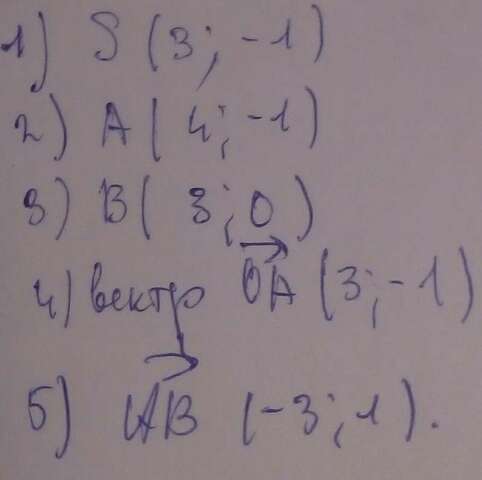 1) S (3; -1)
2) A ( 4; -1)
3) B ( 3; 0)
4) вектр OA (3; -1)
5) AB (-3; 1).